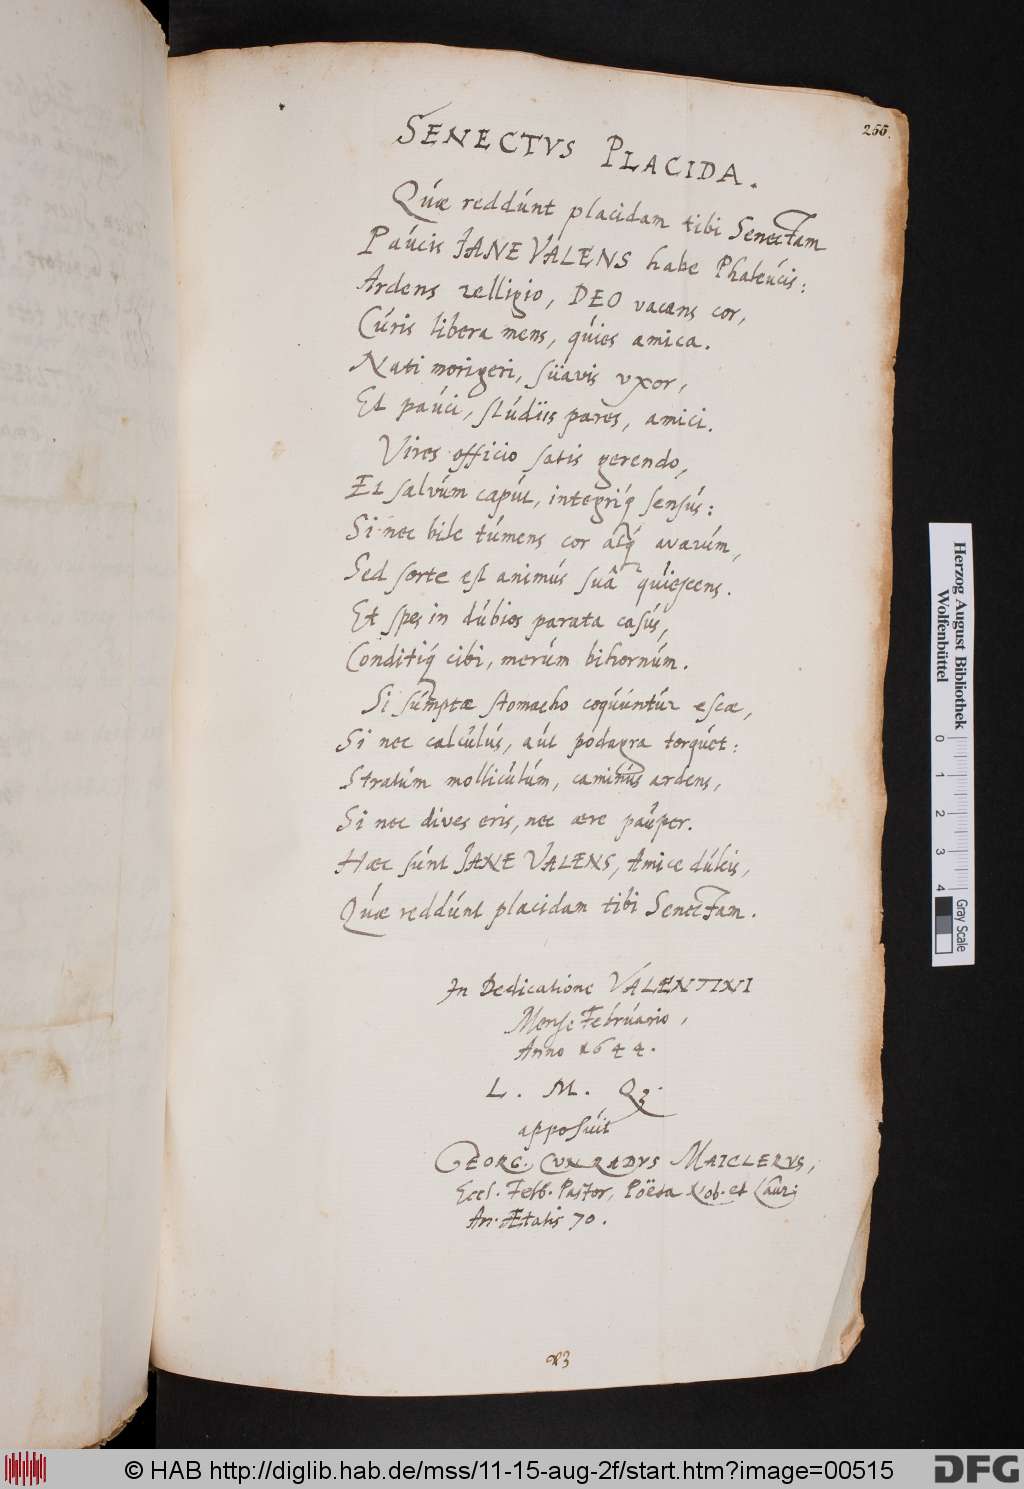 266.
SENECTVS PLACIDA.
Quæ reddunt placidam tibi Senectam
Paucis JANE VALENS habe Phaleucis:
Ardens relligio, DEO vacans cor,
Curis libera mens, quies amica.
Nati morigeri, suavis vxor,
Et pauci, studiis pares, amici.
Vires officio satis gerendo,
Et salvum caput, integriq sensus:
Si nec bile tumens cor atq avarum,
Sed sorte est animus suâ quiescens.
Et spes in dubios parata casus,
Conditiq cibi, merum bihornum.
Si sumptæ stomacho coquuntur escæ,
Si nec calculus, aut podagra torquet:
Stratum molliculum, caminus ardens,
Si nec dives eris, nec ære pauper.
Hæc sunt JANE VALENS, Amice dulcis,
Quæ reddunt placidam tibi Senectam.
In Dedicatione VALENTINI
Mens. Februario,
Anno 1644.
L. M. Q3.
apposuit
GEORG. CVNRADVS MAICLERVS,
Eccl. Felb. Pastor, Poëta Nob. et Laur.
An. Ætatis 70.
Herzog August Bibliothek
Wolfenbüttel
0 1 2 3 4
Gray Scale
© HAB http://diglib.hab.de/mss/11-15-aug-2f/start.htm?image=00515
DFG